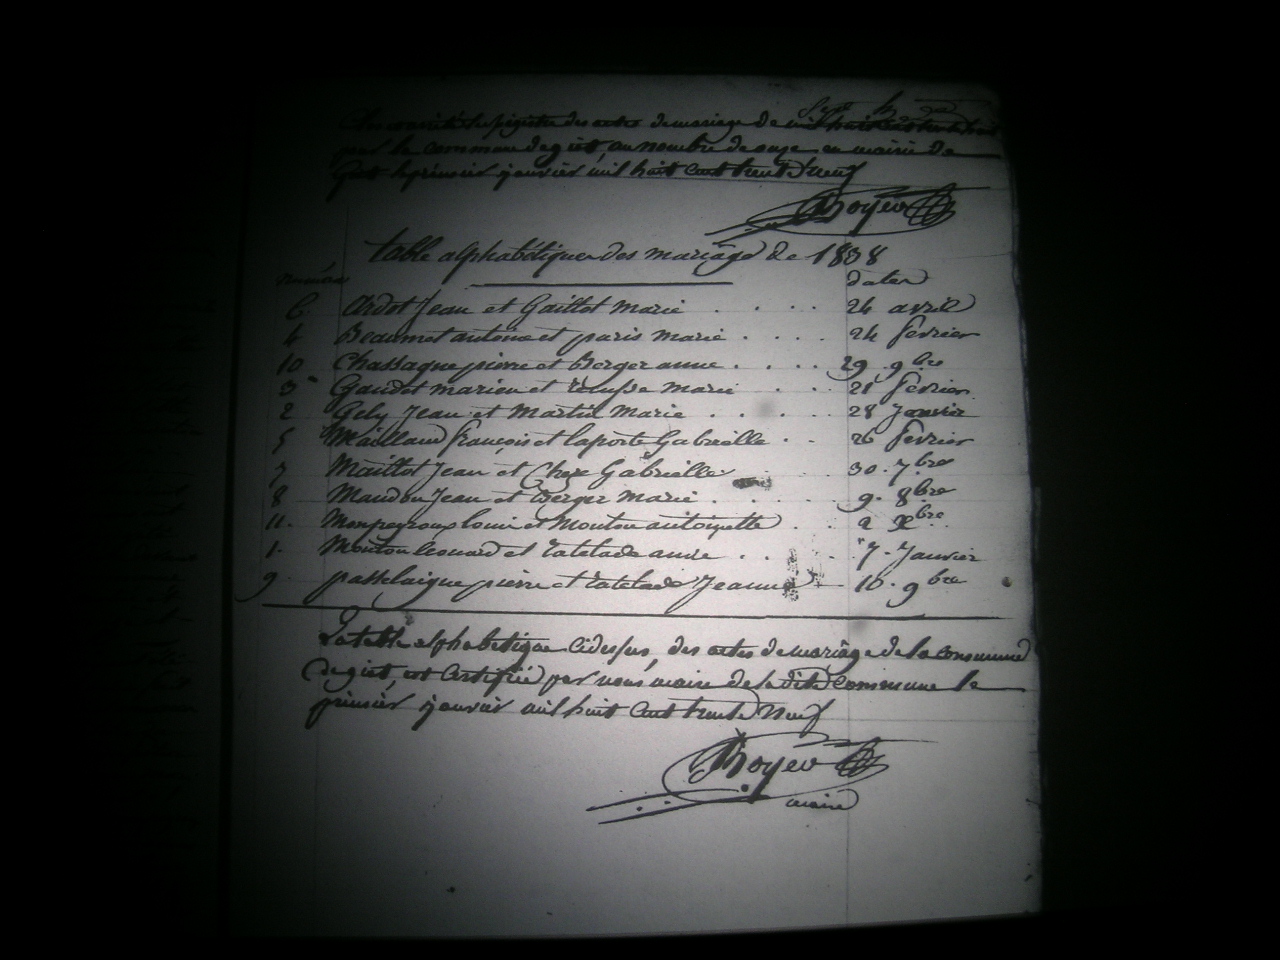 Clos et arrêté le registre des actes de mariage de mil huit cent trente huit
pour la commune de giat, au nombre de onze en mairie de
Giat le premier janvier mil huit cent trente neuf
Boyer
table alphabétique des mariage de 1838
numéros dates
6 Ardot Jean et Gaillot Marie 24 avril
4 Beaumet antoine et paris marie 24 fevrier
10 Chassagne pierre et Berger anne 29 9bre
3 Gaudet marien et marie 21 fevrier
2 Gely Jean et Martin Marie 28 Janvier
5 Maillaud françois et laporte Gabrielle 26 fevrier
7 Maillot Jean et Gabrielle 30 7bre
8 Maudou Jean et Berger marie 9 8bre
11 Monpeyroux louis et Mouton antoinette 2 Xbre
1 Mouton leonard et anne 7 Janvier
9 passelaigue pierre et Jeanne 10 9bre
La table alphabétique cidessus, des actes de mariage de la commune
de giat, est certifiée par nous maire de la dite commune le
premier janvier mil huit cent trente neuf
Boyer
maire